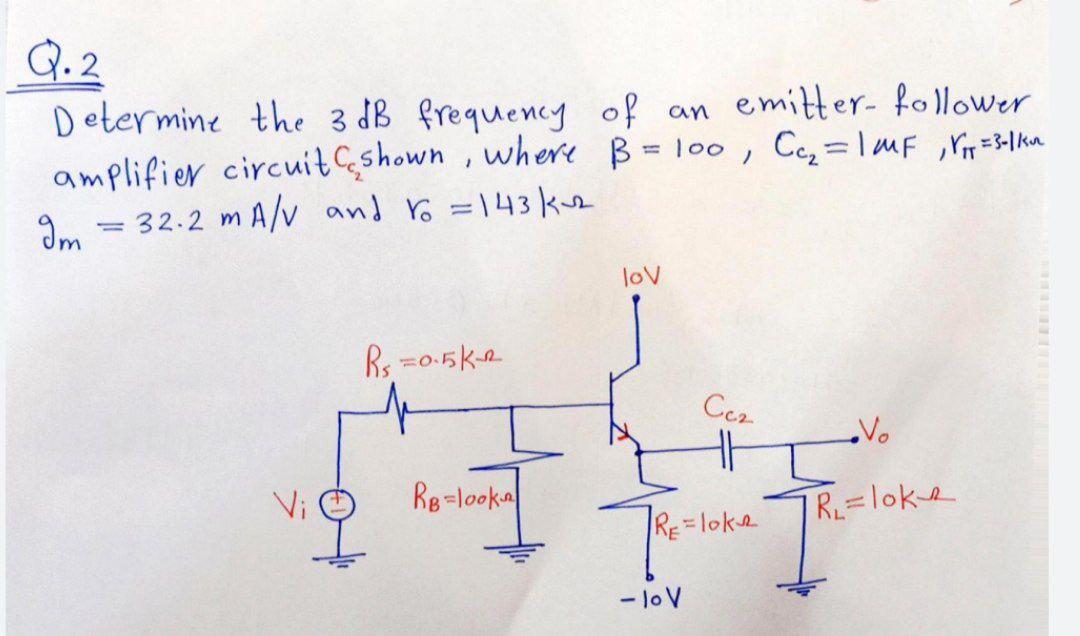 Q.2
Determine the 3 dB frequency of an emitter-follower
amplifier circuit Cc2 shown , where β = 100 , Cc2 = 1 μF , rπ = 3.1kΩ
gm = 32.2 mA/V and ro = 143 kΩ
10V
Rs = 0.5kΩ
Cc2
Vo
Vi
+
-
RB = 100kΩ
RE = 10kΩ
RL = 10kΩ
-10V